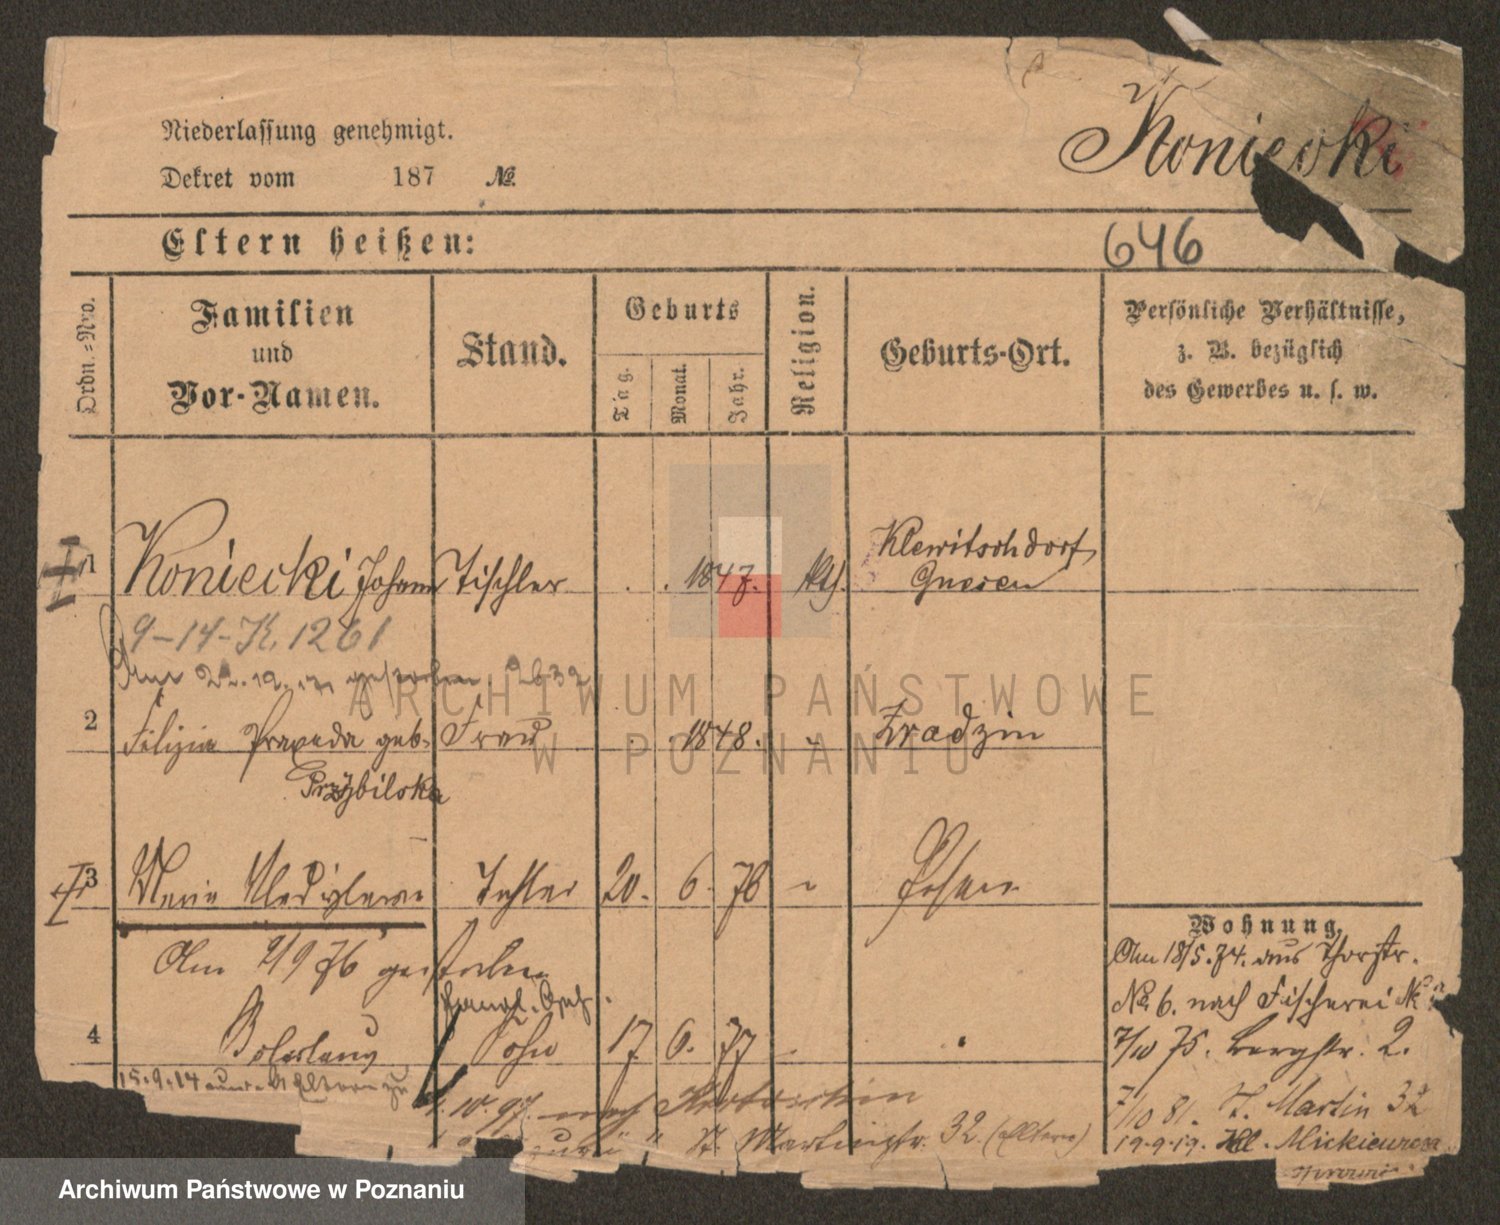 Niederlassung genehmigt.
Dekret vom 187 №
Koniecki
Eltern heißen:
646
Ordn.-Nro.
Familien
und
Vor-Namen.
Stand.
Geburts
Tag.
Monat.
Jahr.
Religion.
Geburts-Ort.
Persönliche Verhältnisse,
z. B. bezüglich
des Gewerbes u. s. w.
1 Koniecki Johann Tischler . . 1847. kth. Klewitschdorf
Gnesen
9-14-K. 1261
gestorben
2 Praxeda geb. Frau . . 1848. Zradzin
Przybilska
3 Marie Tochter 20. 6. 76 Posen
Am 2/9 76 gestorben
4 Boleslaus Sohn 17. 6. 77
15.9.14
10.97. nach
St. Martinstr. 32. (Eltern)
Wohnung.
Am 18/5.74. aus Thorstr.
№ 6. nach Fischerei №
7/10 75. Bergstr. 2.
7/10 81. St. Martin 32
19.9.19. Kl.
ARCHIWUM PAŃSTWOWE
W POZNANIU
Archiwum Państwowe w Poznaniu